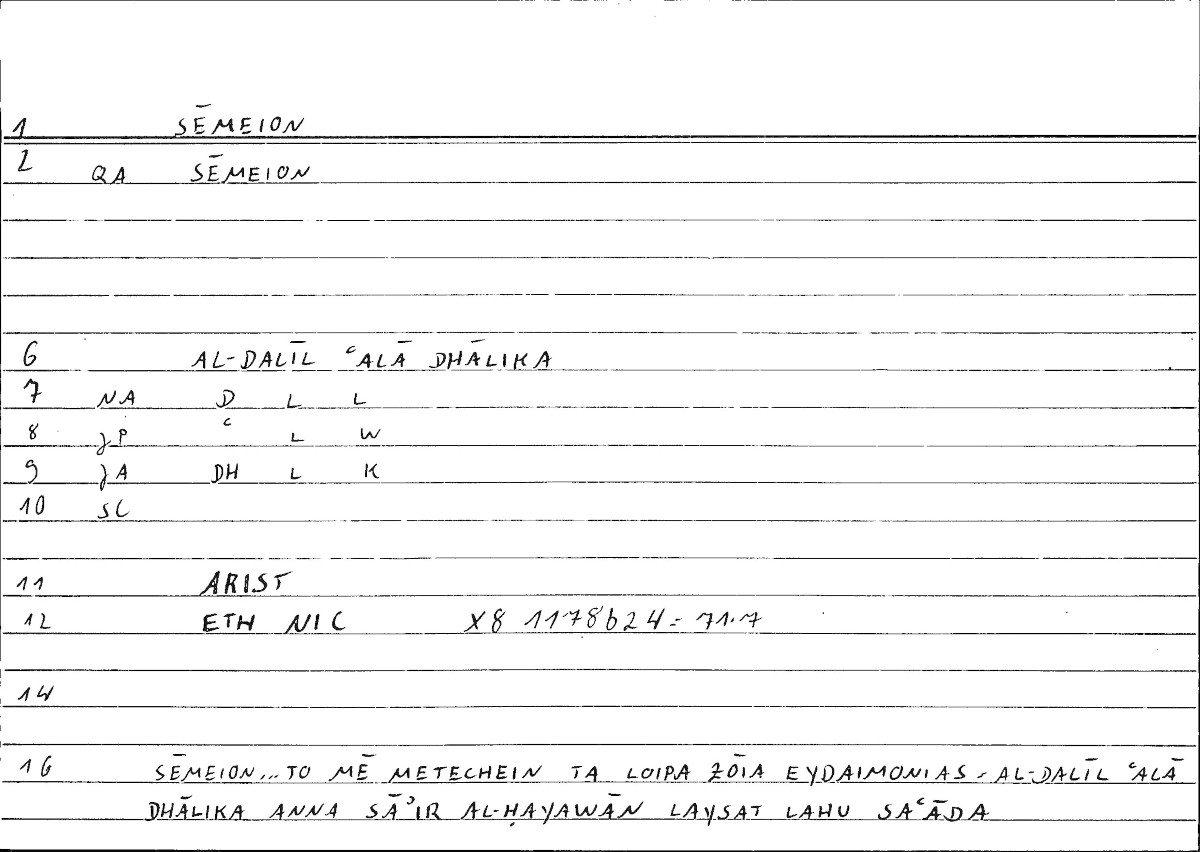 1 SĒMEION
2 QA SĒMEION
6 AL-DALĪL ʿALĀ DHĀLIKA
7 NA D L L
8 ȷP ʿ L W
9 ȷA DH L K
10 SC
11 ARIST
12 ETH NIC X8 1178b24 = 71.7
14
16 SĒMEION... TO MĒ METECHEIN TA LOIPA ZŌIA EYDAIMONIAS - AL-DALĪL ʿALĀ
DHĀLIKA ANNA SĀʾIR AL-ḤAYAWĀN LAYSAT LAHU SAʿĀDA